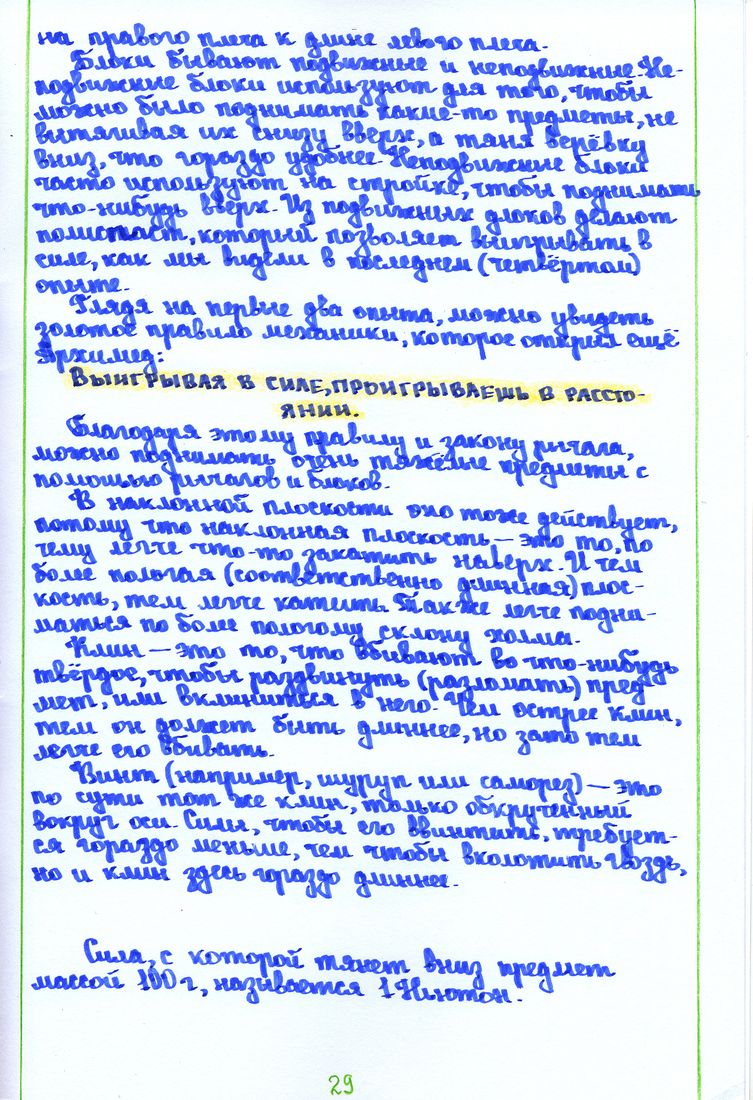 на правого плеча к длине левого плеча.
Блоки бывают подвижные и неподвижные. Не-
подвижные блоки используют для того, чтобы
можно было поднимать какие-то предметы, не
вытягивая их снизу вверх, а тяня верёвку
вниз, что гораздо удобнее. Неподвижные блоки
часто используют на стройке, чтобы поднимать
что-нибудь вверх. Из подвижных блоков делают
полиспаст, который позволяет выигрывать в
силе, как мы видели в последнем (четвёртом)
опыте.
Глядя на первые два опыта, можно увидеть
золотое правило механики, которое открыл ещё
Архимед:
ВЫИГРЫВАЯ В СИЛЕ, ПРОИГРЫВАЕШЬ В РАССТО-
ЯНИИ.
Благодаря этому правилу и закону рычага,
можно поднимать очень тяжёлые предметы с
помощью рычагов и блоков.
В наклонной плоскости оно тоже действует,
потому что наклонная плоскость — это то, по
чему легче что-то закатить наверх. И чем
более пологая (соответственно длинная) плос-
кость, тем легче катить. Также легче подни-
маться по более пологому склону холма.
Клин — это то, что вбивают во что-нибудь
твёрдое, чтобы раздвинуть (разломать) пред-
мет, или вклиниться в него. Чем острее клин,
тем он должет быть длиннее, но зато тем
легче его вбивать.
Винт (например, шуруп или саморез) — это
по сути тот же клин, только обкрученный
вокруг оси. Силы, чтобы его ввинтить, требует-
ся гораздо меньше, чем чтобы вколотить гвоздь,
но и клин здесь гораздо длиннее.
Сила, с которой тянет вниз предмет
массой 100 г, называется 1 Ньютон.
29